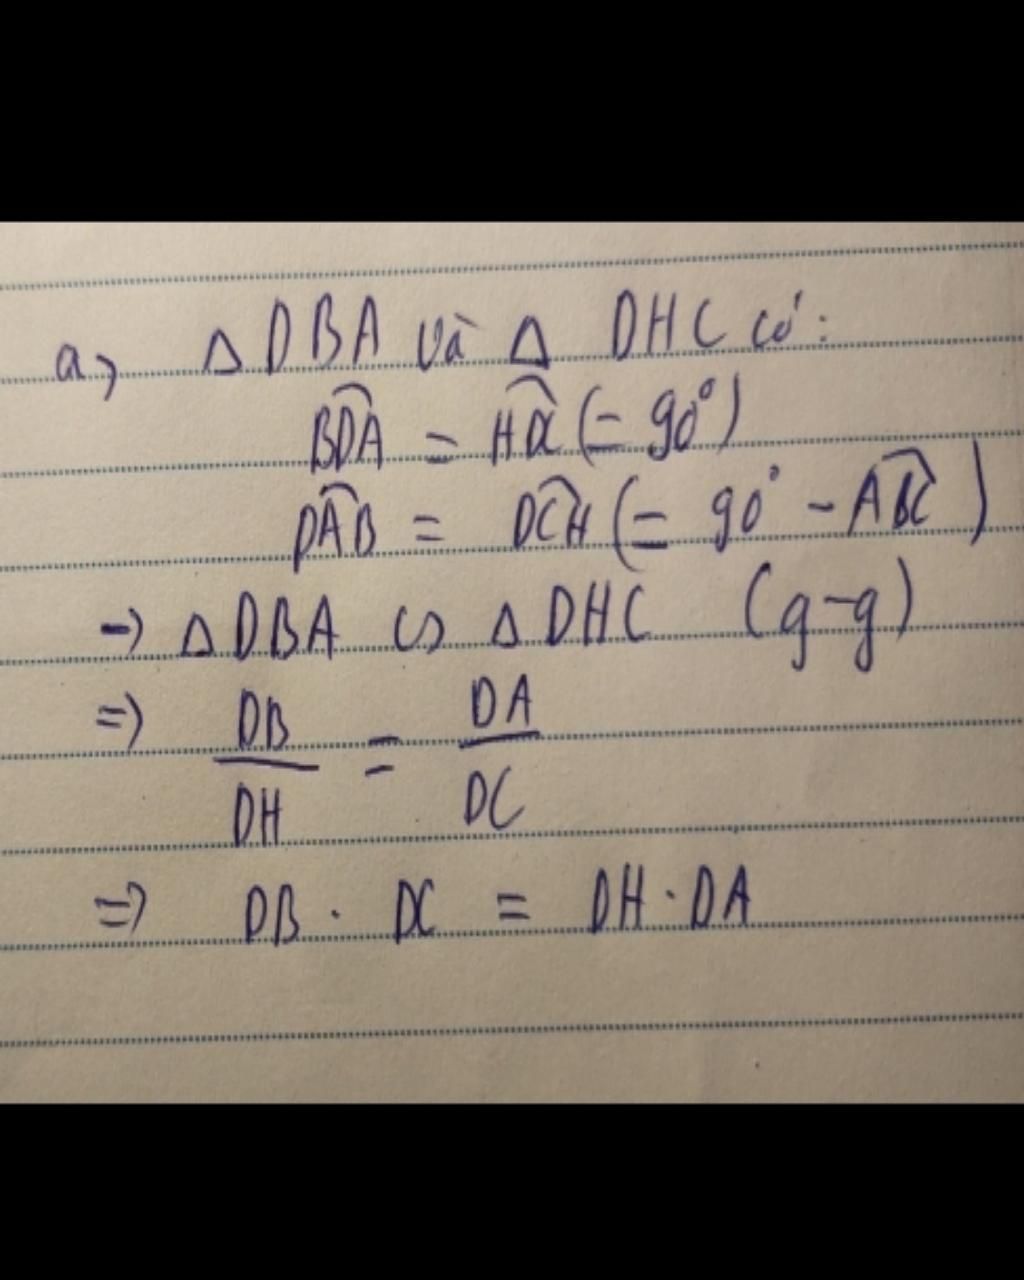 a, △DBA và △ DHC có:
\widehat{BDA} = \widehat{HDC} (= 90°)
\widehat{DAB} = \widehat{DCH} (= 90° - \widehat{ABC})
→ △DBA ∽ △DHC (g-g)
⇒ \frac{DB}{DH} = \frac{DA}{DC}
⇒ DB · DC = DH · DA